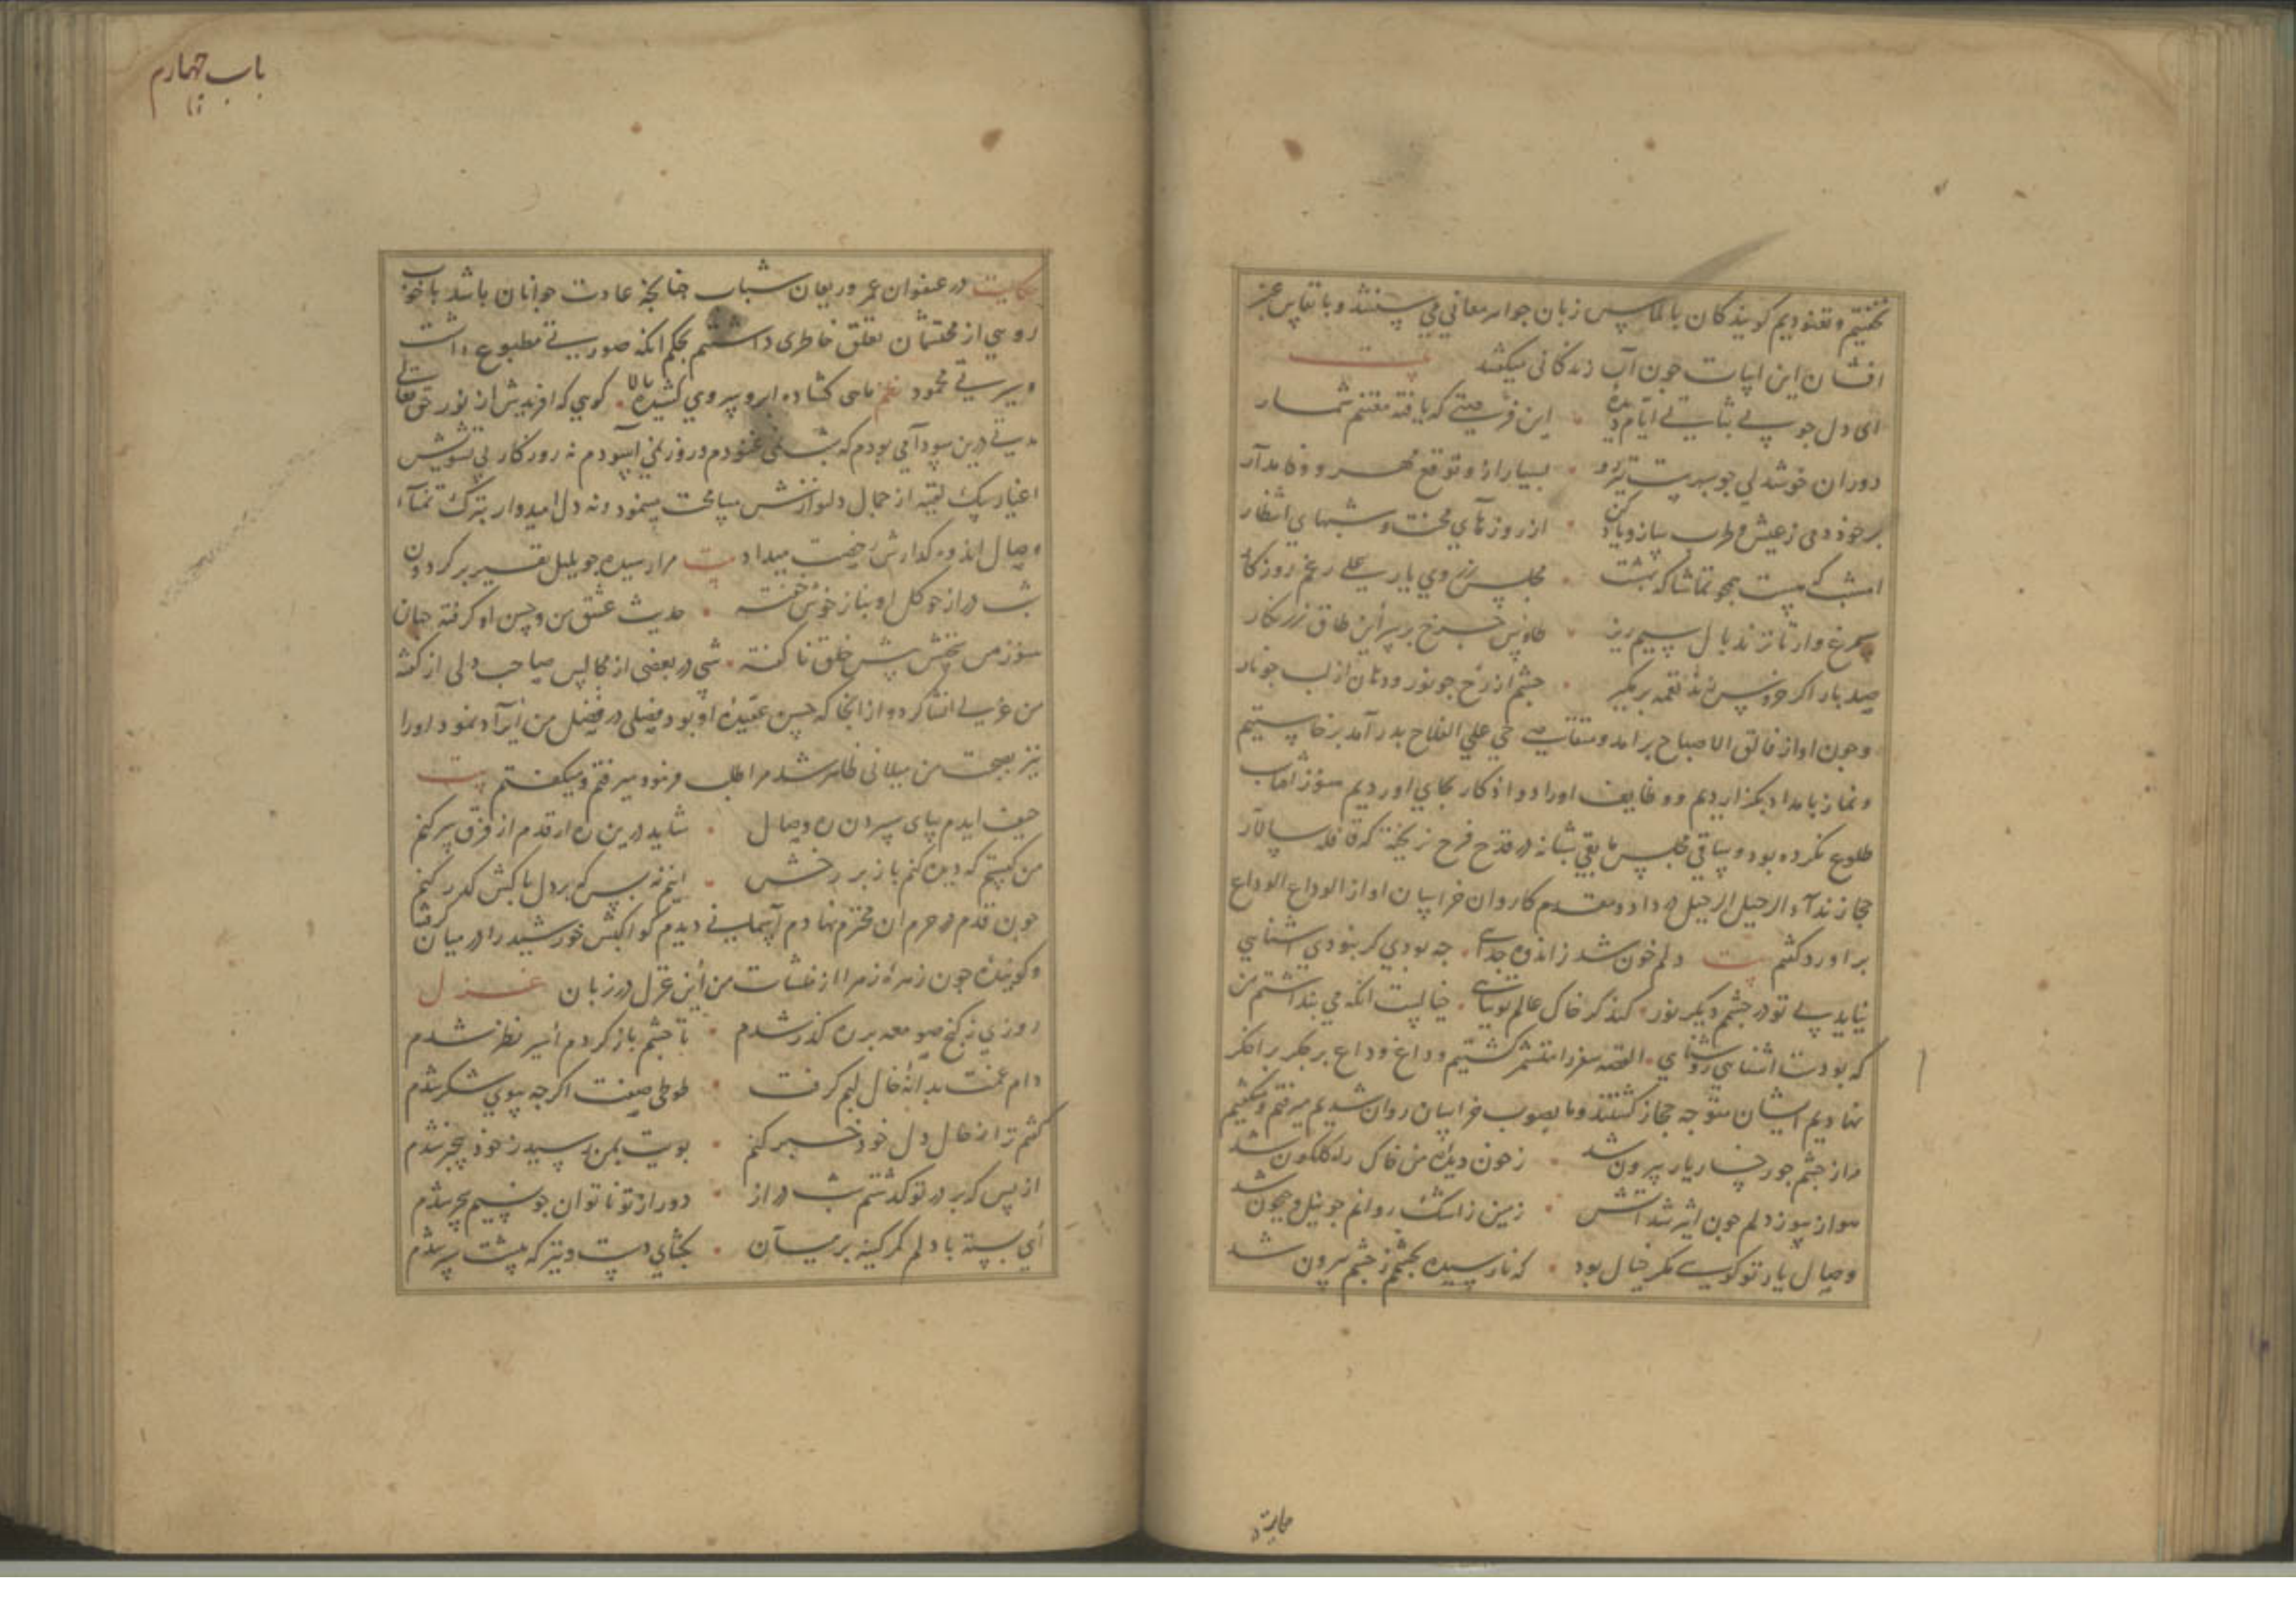 نخفتیم و نغنودیم کویندکان بالماس زبان جواهر معانی می سفتند و با نفاس
افشان این ابیات جون آب زندکانی میکفتند بیت
ای دل جو بی ثباتی ایام دیده این فرصتی که یافته مغتنم شمار
دوران خوشدلی جو بسرست تیزرو بسیار ازو توقع مهر و وفا مدار
برخور دمی ز عیش و طرب ساز و یاد کن از روزهای محنت و شبهای انتظار
امشب که هست همجو تماشاکه بهشت مجلس ز روی یار علی رغم روزکار
سیمرغ وار تا نزند بال سیم ریز طاوس جرخ بر سر این طاق زرنکار
صد بار اکر خروس نغمه برکیر جشم از رخ جو نور و دهان از لب جو نار
وجون اواز فالق الاصباح برامد و متقاضی حی علی الفلاح بدر آمد برخاستیم
و نماز بامداد بکزاردیم و وظایف اوراد و اذکار بجای اوردیم هنوز افتاب
طلوع نکرده بود و ساقی مجلس مابقی شبانه در قدح فرح نریخته که قافله سالار
حجاز ندآء الرحیل الرحیل در داد و مقدم کاروان خراسان اواز الوداع الوداع
براورد کفتم بیت دلم خون شد ز اندوه جدایی جه بودی کر نبودی اشنایی
نیاید بی تو در جشم دیکر نور کند کر خاک عالم توتیایی خیالست انکه می بنداشتم من
که بودت اشنایی روشنایی القصه سفر را متشمر کشتیم و داغ وداع بر جکر براخکر
نهادیم ایشان متوجه حجاز کشتند و ما بصوب خراسان روان شدیم میرفتم و میکفتم
مرا ز جشم جو رخسار یار بیرون شد ز خون دیده من خاک راه کلکون شد
هوا ز سوز دلم جون اثیر شد اتش زمین ز اشک روانم جو نیل و جیحون شد
وصال یار تو کویی مکر خیال بود که نارسیده بجشم ز جشم بیرون شد
حکایت در
باب جهارم
حکایت در عنفوان عمر و ریعان شباب جنانکه عادت جوانان باشد با خوب
رویی از محتشمان تعلق خاطری داشتم بحکم انکه صورتی مطبوع داشت
و سیرتی محمود نظم ماهی کشاده ابرو سروی کشیده بالا کویی که افرینش از نور حق تعالی
مدتی درین سودا می بودم که بشب نمی غنودم و روز نمی آسودم نه روزکار بی تشویش
اغیار یک لقیه از جمال دلنوازش مسامحت مینمود و نه دل امیدوار بترک تمنآء
وصال اندوه کدارش رخصت میداد بیت مرا رسیده جو بلبل نفیر بر کردون
شب دراز جو کل او بناز خوش خفته حدیث عشق من و حسن او کرفته جهان
هنوز من سخنش بیش خلق ناکفته شبی در بعضی از مجالس صاحب دلی از کفته
من غزلی انشا کرد و از انجا که حسن عقیده او بود فصلی در فضل من ایراد نمود اورا
نیز بصحبت من میلانی ظاهر شد مرا طلب فرمود میرفتم و میکفتم بیت
حیف ایدم بپای سپردن ره وصال شاید درین ره ار قدم از فرق سر کنم
من کیستم که دیده کنم باز بر رخش اینم نه بس که بر دل باکش کذر کنم
جون قدم در حرم ان محترم نهادم آسمانی دیدم کواکبش خورشید را در میان کرفته
و کوینده جون زهره زهرا از منشات من این غزل در زبان غزل
روزی ز کنج صومعه بر ره کذر شدم تا جشم باز کردم اسیر نظر شدم
دام غمت بدانه خال لبم کرفت طوطی صفت اکر جه ببوی شکر شدم
کفتم ترا ز حال دل خود خبر کنم بویت بمن رسید ز خود بی خبر شدم
از بس که بر در تو کذشتم شب دراز دور از تو ناتوان جو نسیم سحر شدم
ای بسته با دلم کمر کینه بر میان بکشای دست و تیر که بیشت سبر شدم